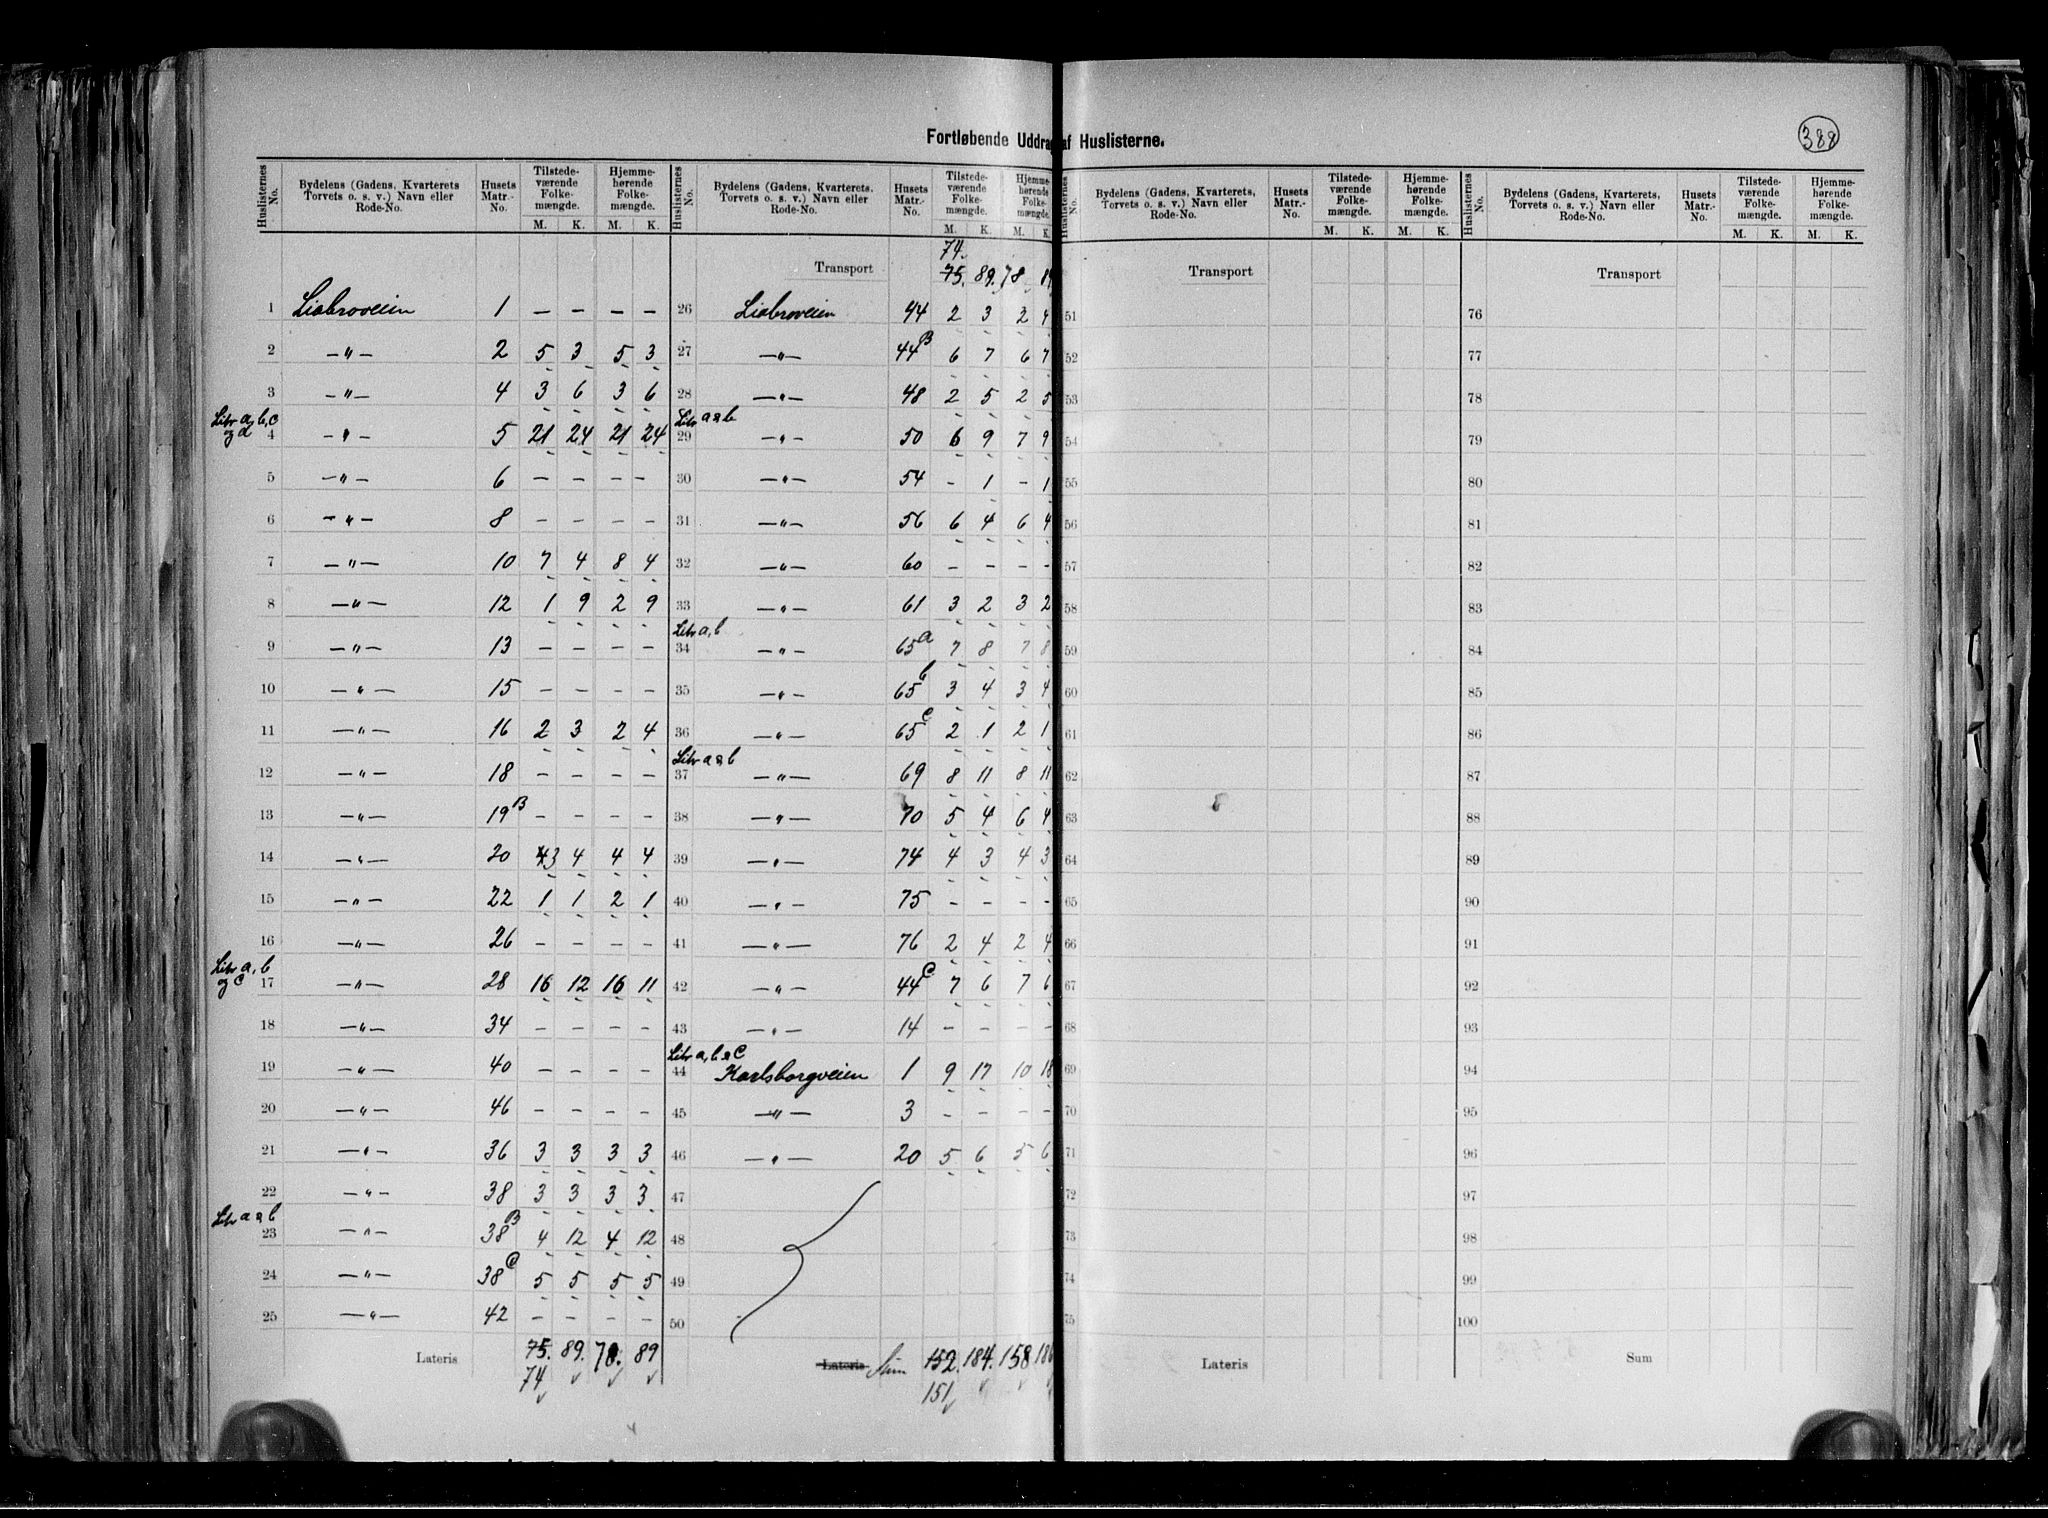 388
Fortløbende Uddrag af Huslisterne.
Huslisternes No. Bydelens (Gadens, Kvarterets, Torvets o. s. v.) Navn eller Rode-No. Husets Matr.-No. Tilstedeværende Folkemængde. M. K. Hjemmehørende Folkemængde. M. K.
1 Liabroveien 1 — — — —
2 —"— 2 5 3 5 3
3 —"— 4 3 6 3 6
Litr a, b, c og d 4 —"— 5 21 24 21 24
5 —"— 6 — — — —
6 —"— 8 — — — —
7 —"— 10 7 4 8 4
8 —"— 12 1 9 2 9
9 —"— 13 — — — —
10 —"— 15 — — — —
11 —"— 16 2 3 2 4
12 —"— 18 — — — —
13 —"— 19B — — — —
14 —"— 20 4 3 4 4 4
15 —"— 22 1 1 2 1
16 —"— 26 — — — —
Litr a, b og c 17 —"— 28 16 12 16 11
18 —"— 34 — — — —
19 —"— 40 — — — —
20 —"— 46 — — — —
21 —"— 36 3 3 3 3
22 —"— 38 3 3 3 3
Litr a & b 23 —"— 38B 4 12 4 12
24 —"— 38C 5 5 5 5
25 —"— 42 — — — —
Lateris 75. 89. 78. 89
74
Huslisternes No. Bydelens (Gadens, Kvarterets, Torvets o. s. v.) Navn eller Rode-No. Husets Matr.-No. Tilstedeværende Folkemængde. M. K. Hjemmehørende Folkemængde. M. K.
74.
Transport 75. 89. 78
26 Liabroveien 44 2 3 2 4
27 —"— 44B 6 7 6 7
28 —"— 48 2 5 2 5
Litr a & b 29 —"— 50 6 9 7 9
30 —"— 54 — 1 — 1
31 —"— 56 6 4 6 4
32 —"— 60 — — — —
33 —"— 61 3 2 3 2
Litr a, b 34 —"— 65a 7 8 7 8
35 —"— 65b 3 4 3 4
36 —"— 65c 2 1 2 1
Litr a & b 37 —"— 69 8 11 8 11
38 —"— 70 5 4 6 4
39 —"— 74 4 3 4 3
40 —"— 75 — — — —
41 —"— 76 2 4 2 4
42 —"— 44C 7 6 7 6
43 —"— 14 — — — —
Litr a, b & c 44 Karlsborgveien 1 9 17 10 18
45 —"— 3 — — — —
46 —"— 20 5 6 5 6
47
48
49
50
Lateris Sum 152. 184. 158 186
151
Huslisternes No. Bydelens (Gadens, Kvarterets, Torvets o. s. v.) Navn eller Rode-No. Husets Matr.-No. Tilstedeværende Folkemængde. M. K. Hjemmehørende Folkemængde. M. K.
Transport
51
52
53
54
55
56
57
58
59
60
61
62
63
64
65
66
67
68
69
70
71
72
73
74
75
Lateris
Huslisternes No. Bydelens (Gadens, Kvarterets, Torvets o. s. v.) Navn eller Rode-No. Husets Matr.-No. Tilstedeværende Folkemængde. M. K. Hjemmehørende Folkemængde. M. K.
Transport
76
77
78
79
80
81
82
83
84
85
86
87
88
89
90
91
92
93
94
95
96
97
98
99
100
Sum